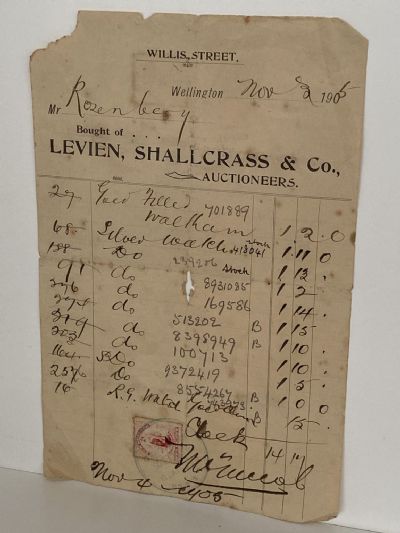 WILLIS, STREET.
Wellington Nov 2 1905
Mr Rozenberg
Bought of . . .
LEVIEN, SHALLCRASS & Co.,
AUCTIONEERS.
29 Gold Filled
Waltham 701889 1 . 2 . 0
68 Silver Watch 1 . 11 0
188 Do 239206 Stock 1 12
91 do 8931085 1 2
do 169586 1 14
do 513202 B 1 15
202 do 8398949 B 1 10
164 Do 100713 1 10
Do 9372419 1 5
16 R.G. 8554267 B 1 0 0
B 15
Clock
14 11
Nov 4 1905